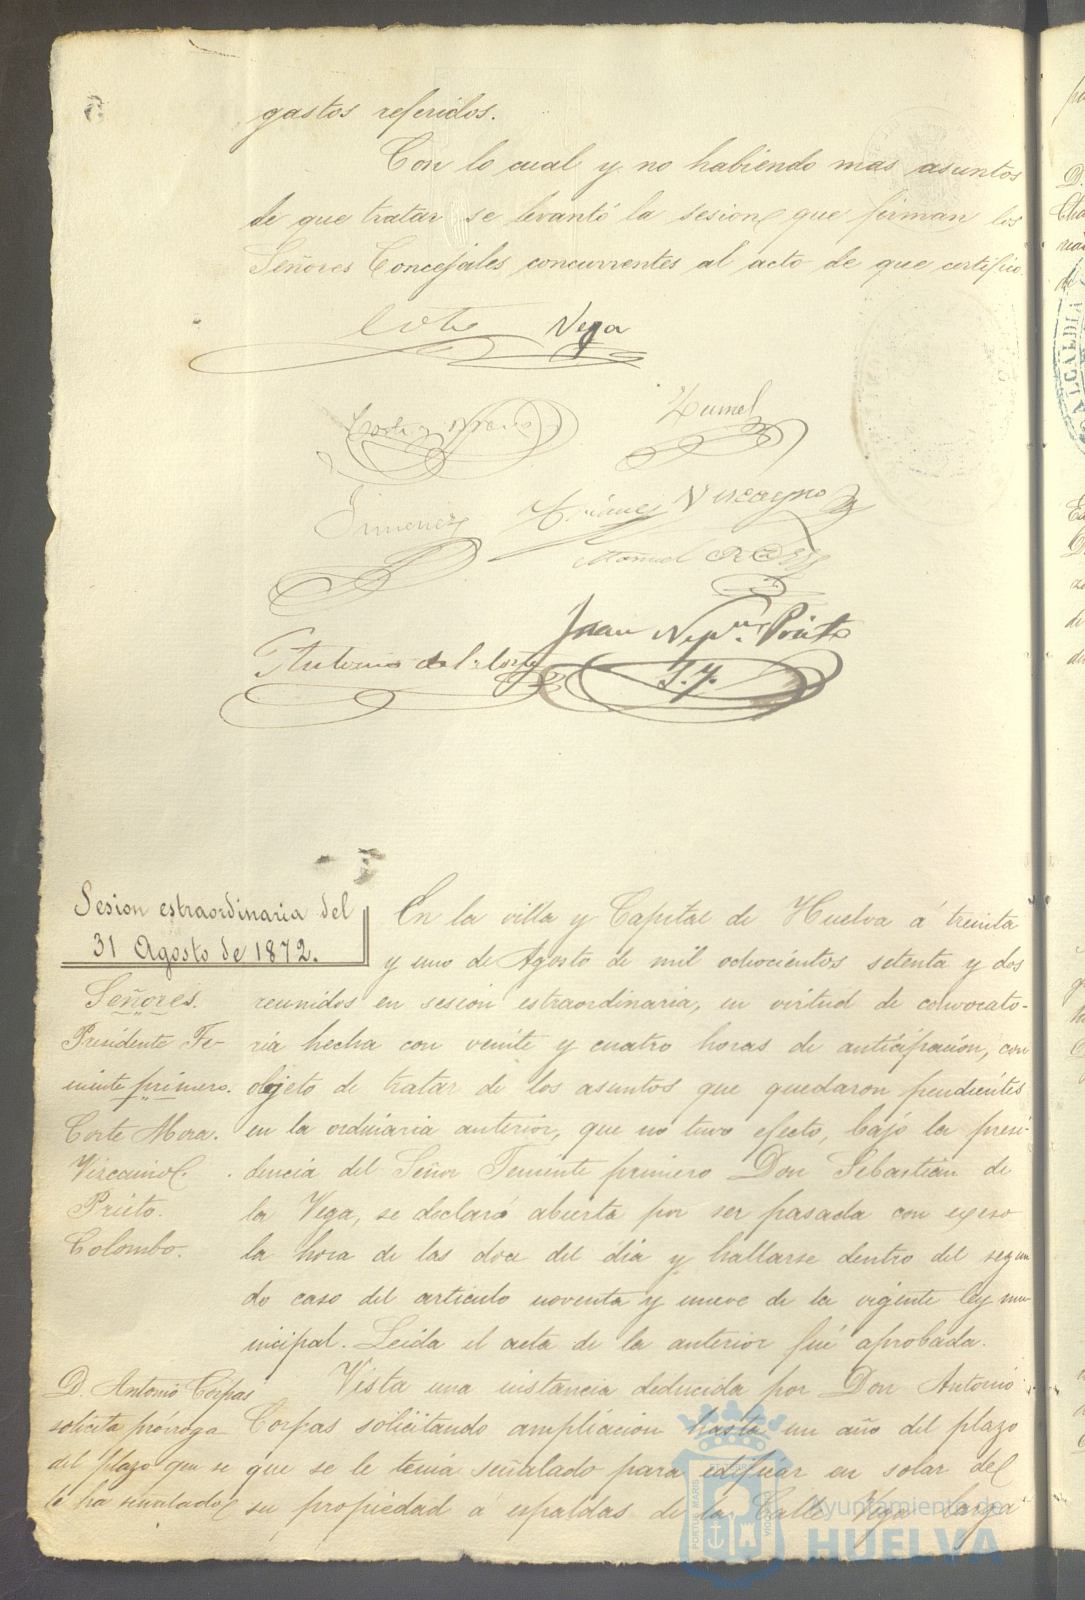 gastos referidos.
Con lo cual y no habiendo mas asuntos
de que tratar se levantó la sesion que firman los
Señores Concejales concurrentes al acto de que certifico.
Vega
Zumel
Jimenez
Vizcayno
Manuel
Juan Nep.no Prieto
Antonio de la Corte
S. I.
Sesion estraordinaria del
31 Agosto de 1872.
Señores
Presidente Te-
niente primero.
Corte Mora.
Vizcaino.
Prieto.
Colombo.
En la villa y Capital de Huelva á treinta
y uno de Agosto de mil ochocientos setenta y dos
reunidos en sesion estraordinaria, en virtud de convocato-
ria hecha con veinte y cuatro horas de anticipacion, con
objeto de tratar de los asuntos que quedaron pendientes
en la ordinaria anterior, que no tuvo efecto, bajo la presi-
dencia del Señor Teniente primero Don Sebastian de
la Vega, se declaró abierta por ser pasada con exeso
la hora de las doce del dia y hallarse dentro del segun
do caso del articulo noventa y nueve de la vigente ley mu-
nicipal. Leida el acta de la anterior fué aprobada.
D. Antonio Corpas
solicita prorroga
del plazo que se
le ha señalado
Vista una instancia deducida por Don Antonio
Corpas solicitando ampliacion hasta un año del plazo
que se le tenia señalado para edificar en solar de
su propiedad á espaldas de la Calle Vega larga
ALCALDIA
PORTUS MARIS
Ayuntamiento de
HUELVA